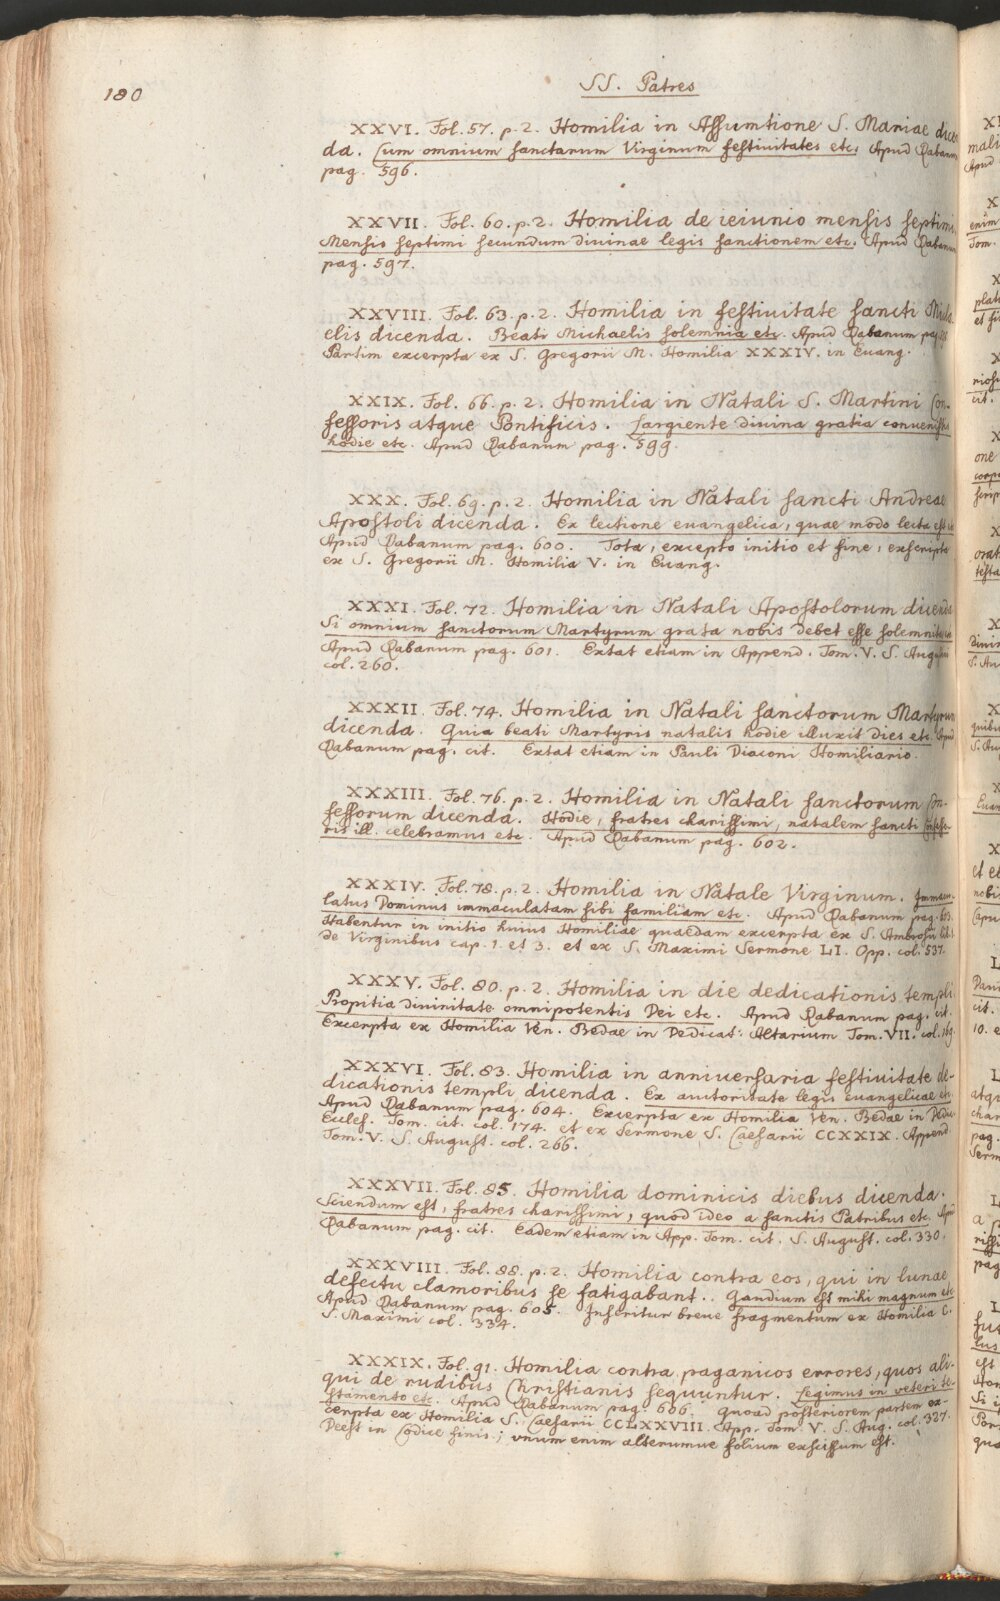 180
SS. Patres
XXVI. Fol. 57. p. 2. Homilia in Assumtione S. Mariae dicen
da. Cum omnium sanctarum Virginum festiuitates etc. Apud Rabanum
pag. 596.
XXVII. Fol. 60. p. 2. Homilia de ieiunio mensis septimi.
Mensis septimi secundum diuinae legis sanctionem etc. Apud Rabanum
pag. 597.
XXVIII. Fol. 63. p. 2. Homilia in festiuitate sancti Micha
elis dicenda. Beati Michaelis solemnia etc. Apud Rabanum pag.
Partim excerpta ex S. Gregorii M. Homilia XXXIV. in Euang.
XXIX. Fol. 66. p. 2. Homilia in Natali S. Martini Con-
fessoris atque Pontificis. Largiente diuina gratia conuenistis
hodie etc. Apud Rabanum pag. 599.
XXX. Fol. 69. p. 2. Homilia in Natali sancti Andreae
Apostoli dicenda. Ex lectione euangelica, quae modo lecta est
Apud Rabanum pag. 600. Tota, excepto initio et fine, exscripta
ex S. Gregorii M. Homilia V. in Euang.
XXXI. Fol. 72. Homilia in Natali Apostolorum dicenda
Si omnium sanctorum Martyrum grata nobis debet esse solemnitas
Apud Rabanum pag. 601. Extat etiam in Append. Tom. V. S. Augustini
col. 260.
XXXII. Fol. 74. Homilia in Natali sanctorum Martyrum
dicenda. Quia beati Martyris natalis hodie illuxit dies etc. Apud
Rabanum pag. cit. Extat etiam in Pauli Diaconi Homiliario.
XXXIII. Fol. 76. p. 2. Homilia in Natali sanctorum Con-
fessorum dicenda. Hodie, fratres charissimi, natalem sancti Confesso-
ris ill. celebramus etc. Apud Rabanum pag. 602.
XXXIV. Fol. 78. p. 2. Homilia in Natale Virginum. Immacu-
latus Dominus immaculatam sibi familiam etc. Apud Rabanum pag. 603.
Habentur in initio huius Homiliae quaedam excerpta ex S. Ambrosii lib. 1.
de Virginibus cap. 1. et 3. et ex S. Maximi Sermone LI. Opp. col. 537.
XXXV. Fol. 80. p. 2. Homilia in die dedicationis templi.
Propitia diuinitate omnipotentis Dei etc. Apud Rabanum pag. cit.
Excerpta ex Homilia Ven. Bedae in Dedicat: Altarium Tom. VII. col. 169.
XXXVI. Fol. 83. Homilia in anniuersaria festiuitate de-
dicationis templi dicenda. Ex auctoritate legis euangelicae etc.
Apud Rabanum pag. 604. Excerpta ex Homilia Ven. Bedae in Dedic.
Eccles. Tom. cit. col. 174. et ex Sermone S. Caesarii CCXXIX. Append.
Tom. V. S. August. col. 266.
XXXVII. Fol. 85. Homilia dominicis diebus dicenda.
Sciendum est, fratres charissimi, quod ideo a sanctis Patribus etc. Apud
Rabanum pag. cit. Eadem etiam in App. Tom. cit. S. August. col. 330.
XXXVIII. Fol. 88. p. 2. Homilia contra eos, qui in lunae
defectu clamoribus se fatigabant.. Gaudium est mihi magnum etc.
Apud Rabanum pag. 605. Inseritur breue fragmentum ex Homilia C.
S. Maximi col. 334.
XXXIX. Fol. 91. Homilia contra paganicos errores, quos ali-
qui de rudibus Christianis sequuntur. Legimus in veteri te-
stamento etc. Apud Rabanum pag. 606. Quoad posteriorem partem ex-
cerpta ex Homilia S. Caesarii CCLXXVIII. App. Tom. V. S. Aug. col. 327.
Deest in Codice finis; vnum enim alterumue folium exscissum est.